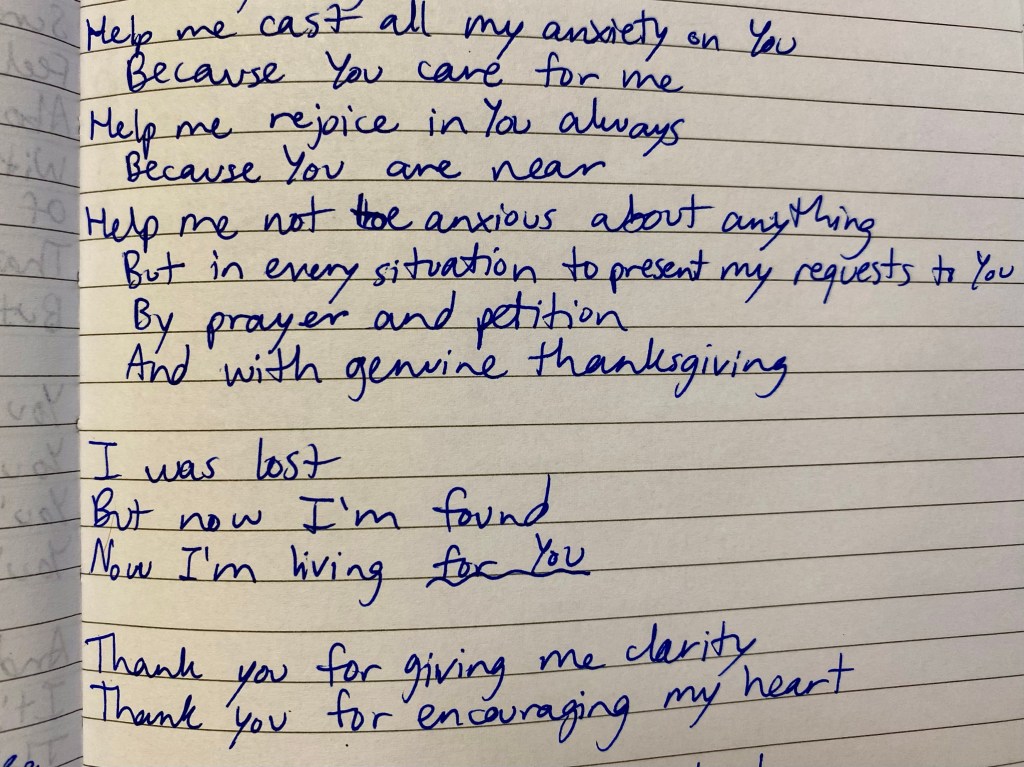 Help me cast all my anxiety on You
Because You care for me
Help me rejoice in You always
Because You are near
Help me not be anxious about anything
But in every situation to present my requests to You
By prayer and petition
And with genuine thanksgiving
I was lost
But now I'm found
Now I'm living for You
Thank you for giving me clarity
Thank you for encouraging my heart